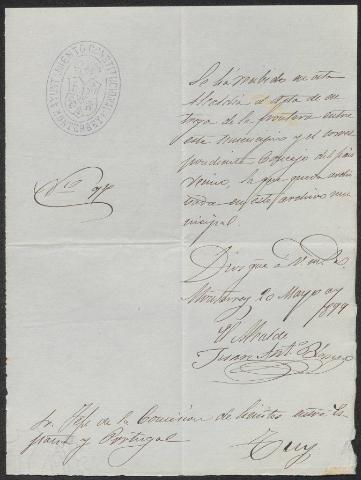 AYUNTAMIENTO CONSTITUCIONAL
Se ha recibido en esta
Alcaldia el Acta de en
trega de la frontera entre
este municipio y el corres
pondiente Concejo del pais
vecino, la que queda archi
vada en este archivo mu
nicipal.
Dios gue á V. m. a.
Monterrey 20 Mayo
1899
El Alcalde
Juan Ant.
Sr. Jefe de la Comision de limites entre Es
paña y Portugal
Tuy